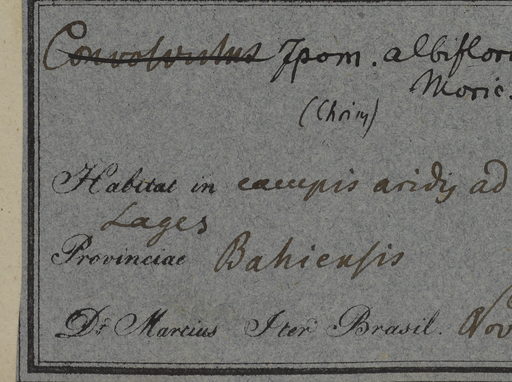 Convolvulus Ipom. albiflor
Moric.
(Choisy)
Habitat in campis aridis ad
Lages
Provinciae Bahiensis
Dr Martius Iter Brasil. Nov